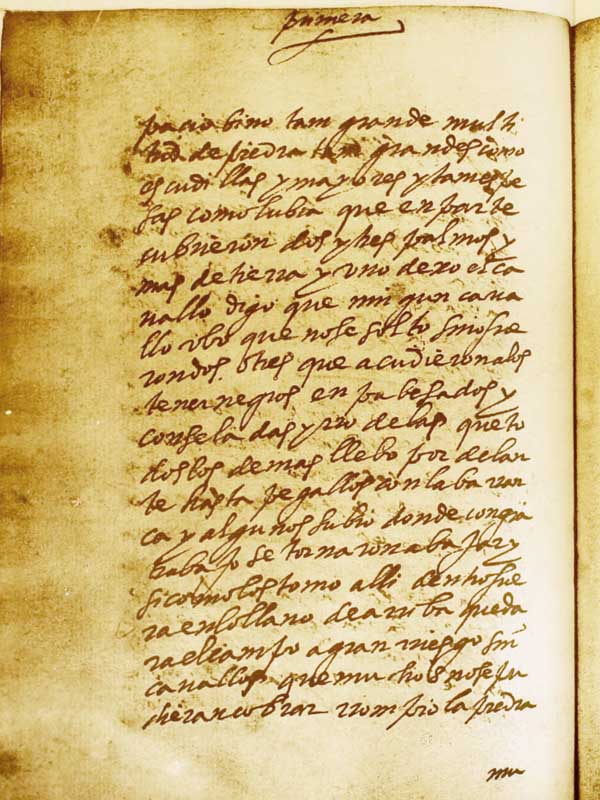 primera
pacio bino tam grande multi
tud de piedra tam grandes como
escudillas y mayores y tam espe
sas como lubia que en parte
cubrieron dos y tres palmos y
mas de tierra y uno dexo el ca
vallo digo que ningun cava
llo ubo que no se solto sino fue
ron dos o tres que acudieron a los
tener negros enpabesados y
con seladas y rrodelas que to
dos los demas llebo por delan
te hasta pegallos con la barran
ca y algunos subio donde con gran
trabajo se tornaron abajar y
si como los tomo alli dentro fue
ra en lo llano de arriba queda
ra el campo a gran rriesgo sin
cavallos que muchos no se pu
dieran cobrar rrompio la piedra
mu